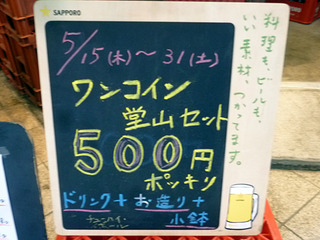 SAPPORO
5/15(木)〜31(土)
ワンコイン
堂山セット
500円
ポッキリ
ドリンク+お造り+
小鉢
料理も、ビールも、
いい素材、つかってます。